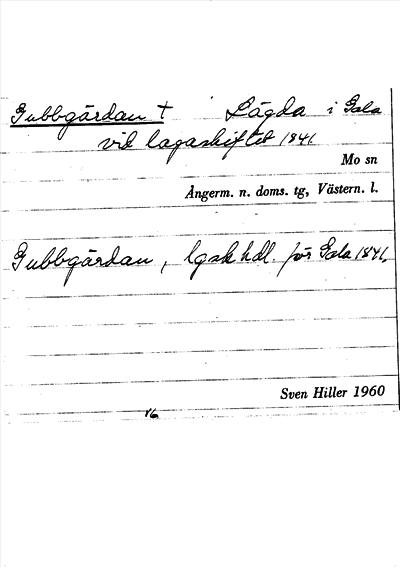 Gubbgärdan † Lägda i Gala
vid lagaskiftet 1841.
Mo sn
Ångerm. n. doms. tg, Västern. l.
Gubbgärdan, lgsk hdl. för Gala 1841.
Sven Hiller 1960
16